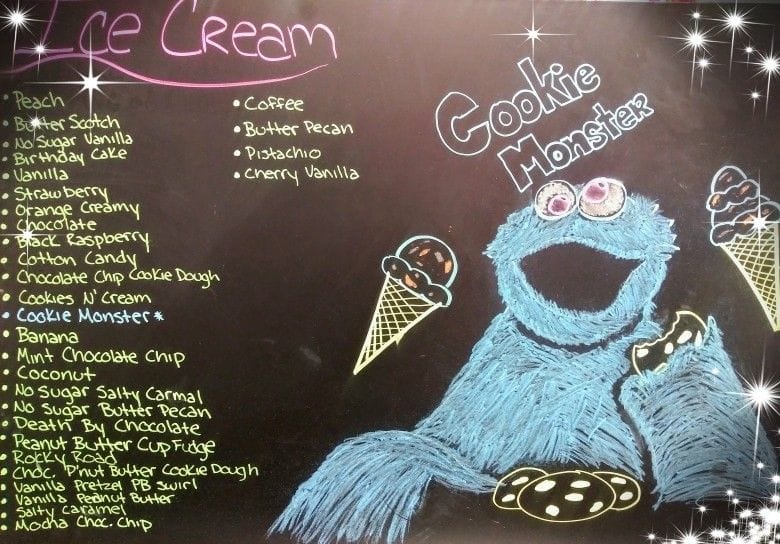 Ice Cream
• Peach
• Butter Scotch
• No Sugar Vanilla
• Birthday Cake
• Vanilla
• Strawberry
• Orange Creamy
• Chocolate
• Black Raspberry
• Cotton Candy
• Chocolate Chip Cookie Dough
• Cookies N' Cream
• Cookie Monster*
• Banana
• Mint Chocolate Chip
• Coconut
• No Sugar Salty Carmal
• No Sugar Butter Pecan
• Death By Chocolate
• Peanut Butter Cup Fudge
• Rocky Road
• Choc. P'nut Butter Cookie Dough
• Vanilla Pretzel PB Swirl
• Vanilla Peanut Butter
• Salty Caramel
• Mocha Choc. Chip
• Coffee
• Butter Pecan
• Pistachio
• Cherry Vanilla
Cookie
Monster